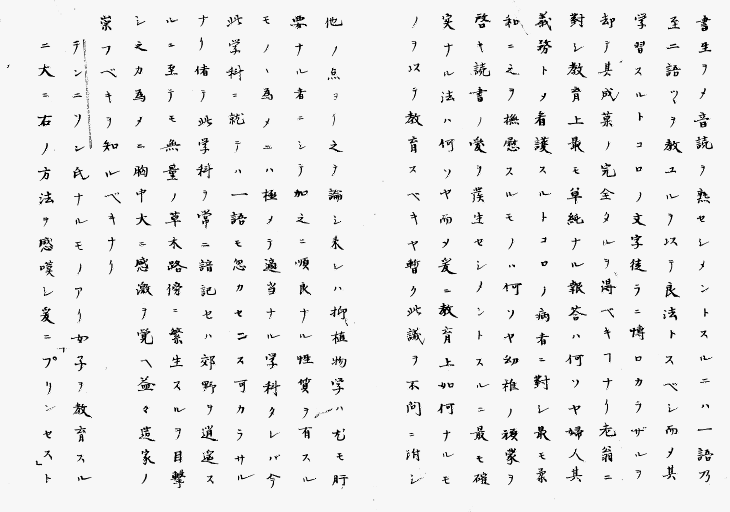 書生ヲメ音読ヲ熟セシメントスルニハ一語乃
至二語ツヽヲ教ユルヲ以テ良法トスベシ而メ其
学習スルトコロノ文字徒ラニ博ロカラザルヲ
却テ其成業ノ完全タルヲ得ベキナリ老翁ニ
對シ教育上最モ単純ナル報答ハ何ソヤ婦人其
義務トメ看護スルトコロノ病者ニ對シ最モ柔
和ニ之ヲ撫慰スルモノハ何ソヤ幼稚ノ頑蒙ヲ
啓キ読書ノ愛ヲ發生セシメントスルニ最モ確
実ナル法ハ何ソヤ而メ爰ニ教育上如何ナルモ
ノヲ以テ教育スベキヤ暫ク此議ヲ不問ニ附シ
他ノ点ヨリ之ヲ論シ来レハ抑植物学ハ尤モ肝
要ナル者ニシテ加之ニ順良ナル性質ヲ有スル
モノヽ為メニハ極メテ適当ナル学科タレバ今
此学科ニ就テハ一語モ忽カセニス可カラサル
ナリ偖テ此学科ヲ常ニ諳記セハ郊野ヲ逍遙ス
ルニ至テモ無量ノ草木路傍ニ繁生スルヲ目撃
シ之カ為メニ胸中大ニ感激ヲ覚ヘ益々造家ノ
栄フベキヲ知ルベキナリ
テンニソン氏ナルモノアリ女子ヲ教育スル
ニ大ニ右ノ方法ヲ感嘆シ爰ニプリンセスト」